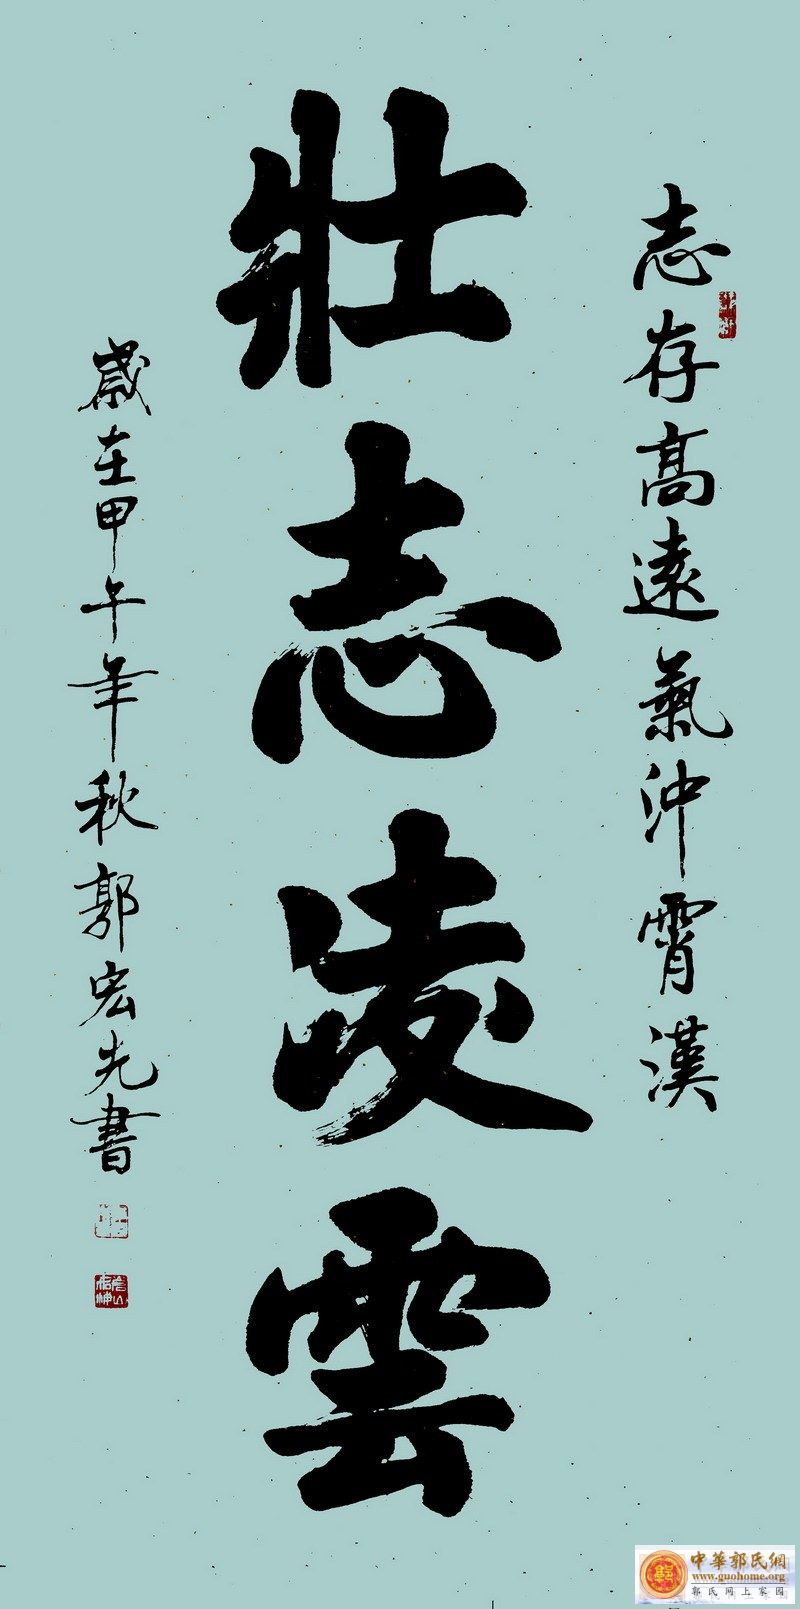 志存高遠氣沖霄漢
壯志凌雲
歲在甲午年秋郭宏先書
中華郭氏網
www.guohome.org
郭氏网上家园